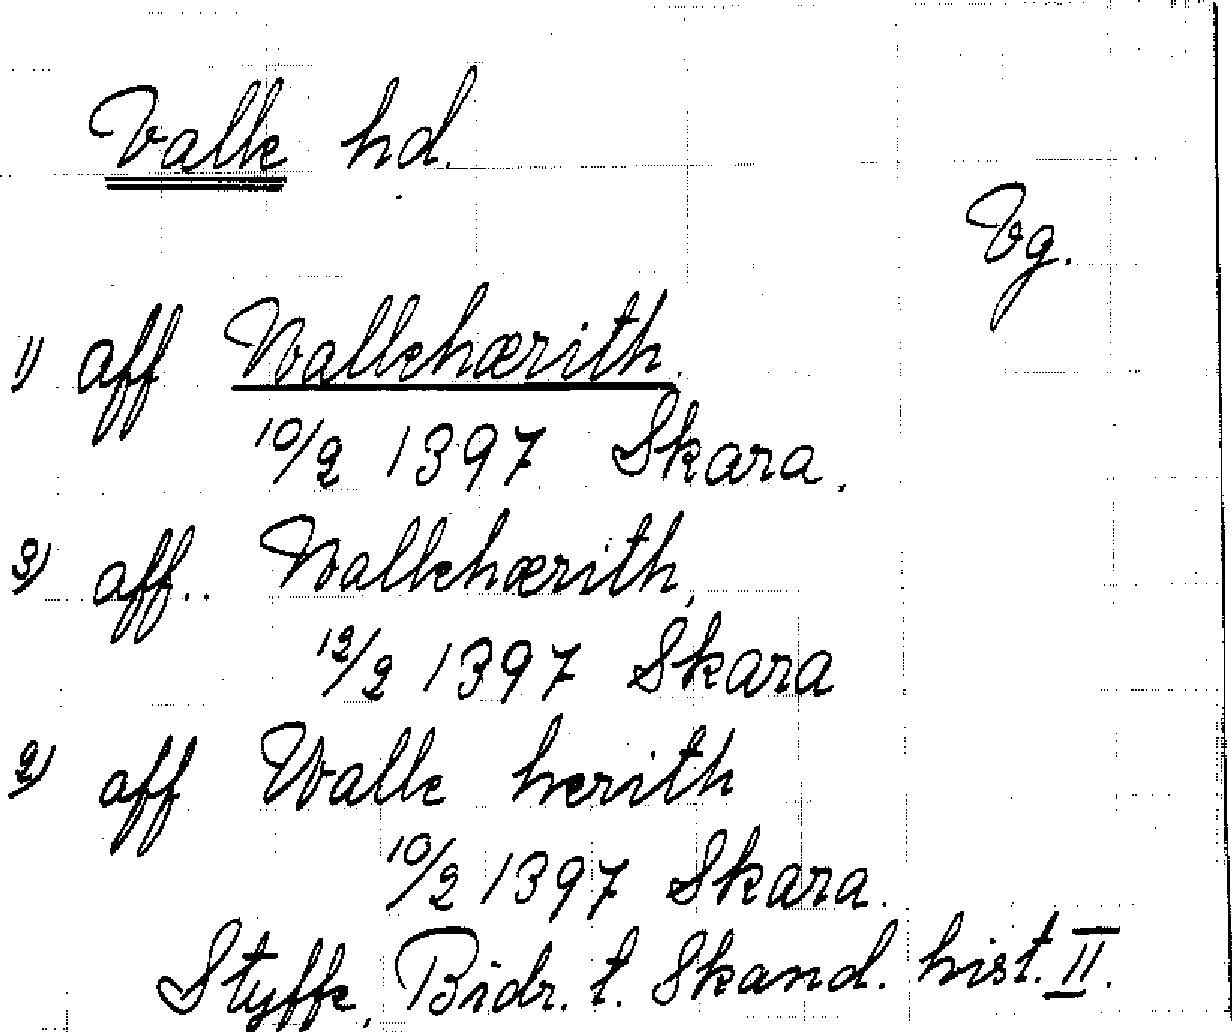 Valle hd.
Vg.
1) aff Wallehærith.
10/2 1397 Skara.
3) aff.. Wallehærith,
12/2 1397 Skara
2) aff Walle hærith
10/2 1397 Skara.
Styffe, Bidr. t. Skand. hist. II.